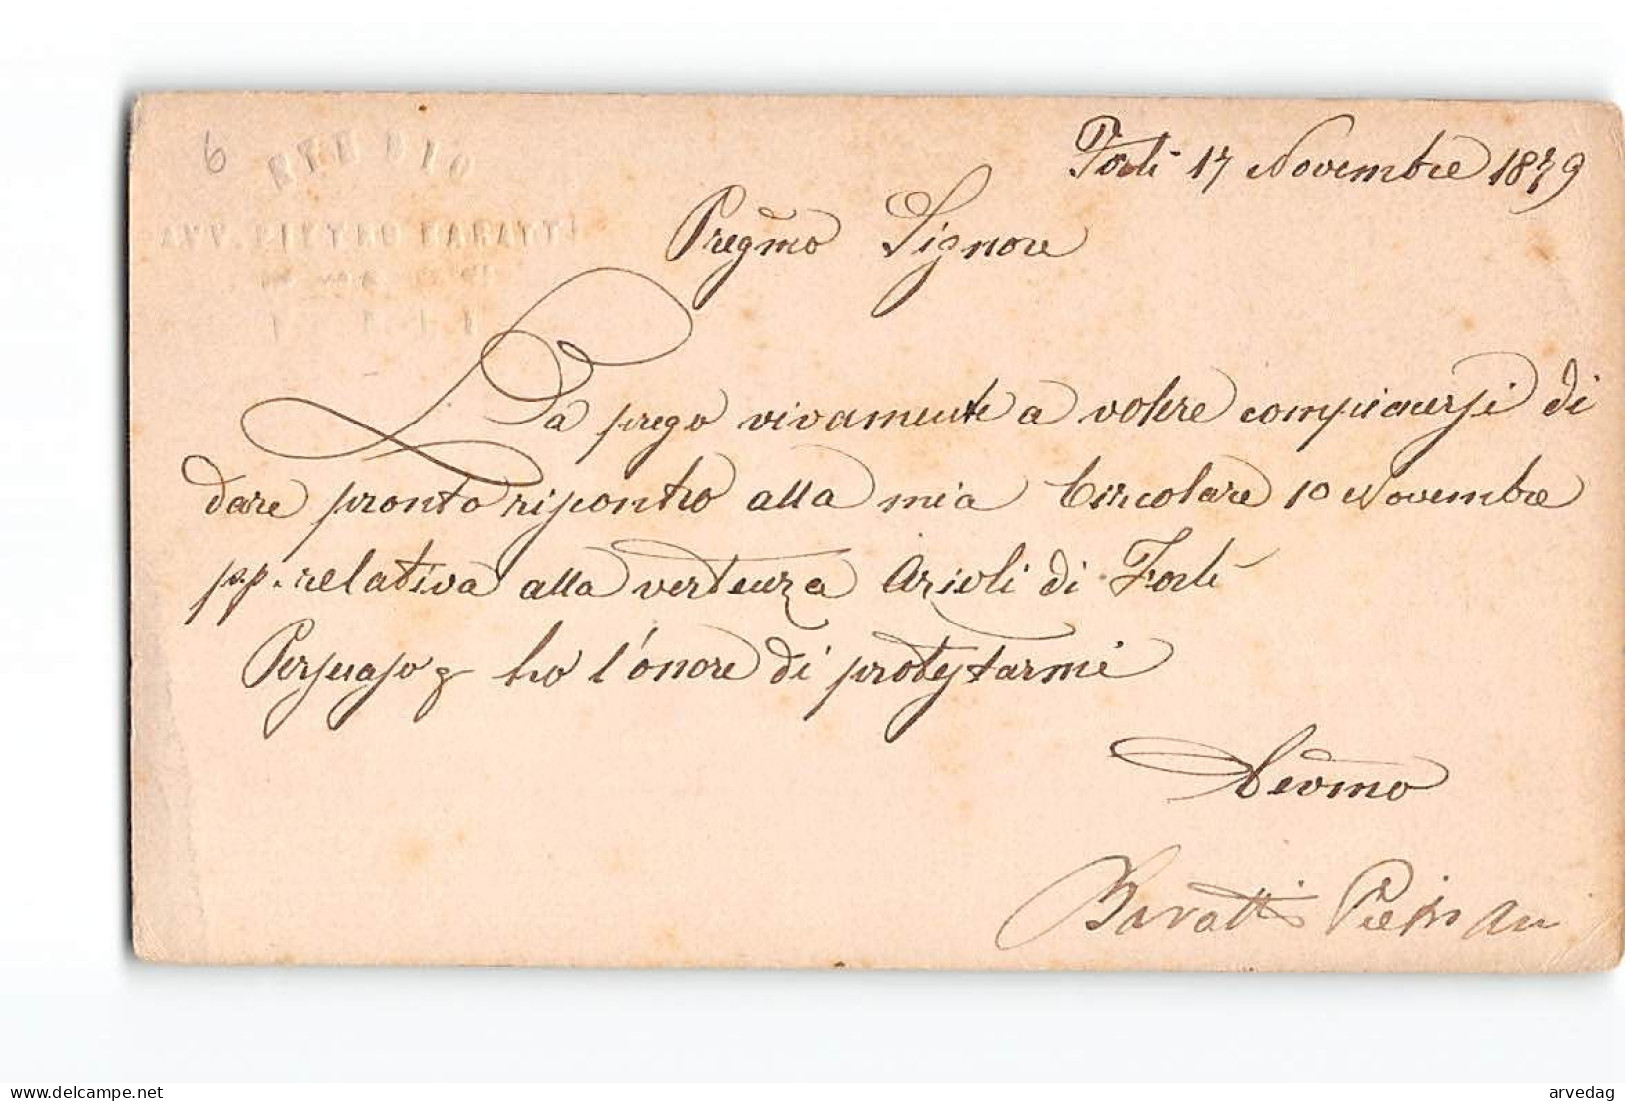 6
STUDIO
AVV. PIETRO BARATTI
Forlì 17 Novembre 1879
Pregmo Signore
La prego vivamente a volere compiacersi di
dare pronto riscontro alla mia Circolare 10 Novembre
p.p. relativa alla vertenza Arioli di Forlì
Persuaso ho l'onore di protestarmi
Devmo
Baratti Pietro Avv
www.delcampe.net
arvedag